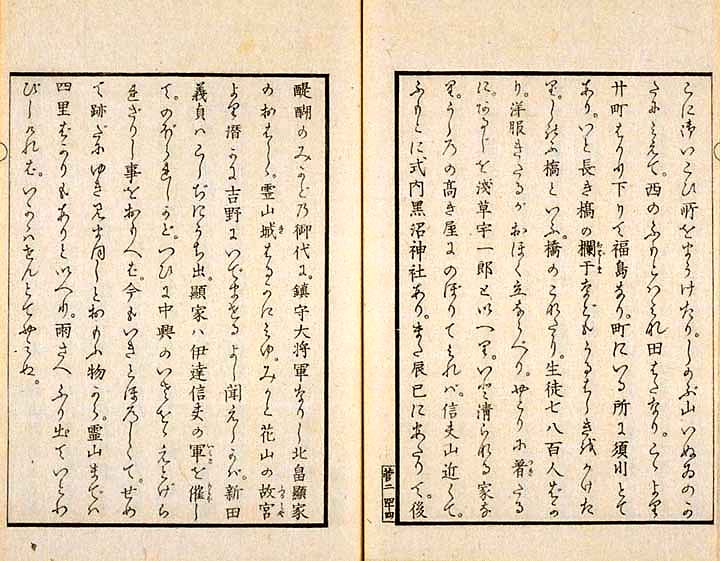 こに御いこひ所をまうけたり。しのぶ山いぬゐのか
たにみえて。西のふもとはみな田はたなり。こゝより
廿町ばかり下りて福島なり。町にいる所に須川とて
あり。いと長き橋の欄干などもうるはしきをかけた
り。しのふ橋といふ。橋のこなたに。生徒七八百人ばか
り。洋服きたるがおほく立ならべり。やとりに着たる
に。あるじを淺草宇一郎と以へり。いと清らなる家な
り。うしろの髙き屋にのぼりてみれバ。信夫山近くて。
ふもとに式内黒沼神社あり。また辰巳にあたりて。後
菅二 四十四
醍醐のみかどの御代に。鎮守大将軍なりし北畠顯家
のおはしゝ。霊山城はるかにみゆ。みかと花山の故宮
より潜かに吉野にいでませるよし聞えしかバ。新田
義貞ハこしぢにうち出。顯家ハ伊達信夫の軍を催し
て。のぼられしかど。つひに中興のいさをゝえとげら
れざりし事をおもへば。今もいきとほろしくて。せめ
て跡だにゆき見まほしとおもふ物から。霊山までハ
四里ばかりもありといへり。雨さへふり出ていとわ
びしければ。いかゞはせんとてやみぬ。